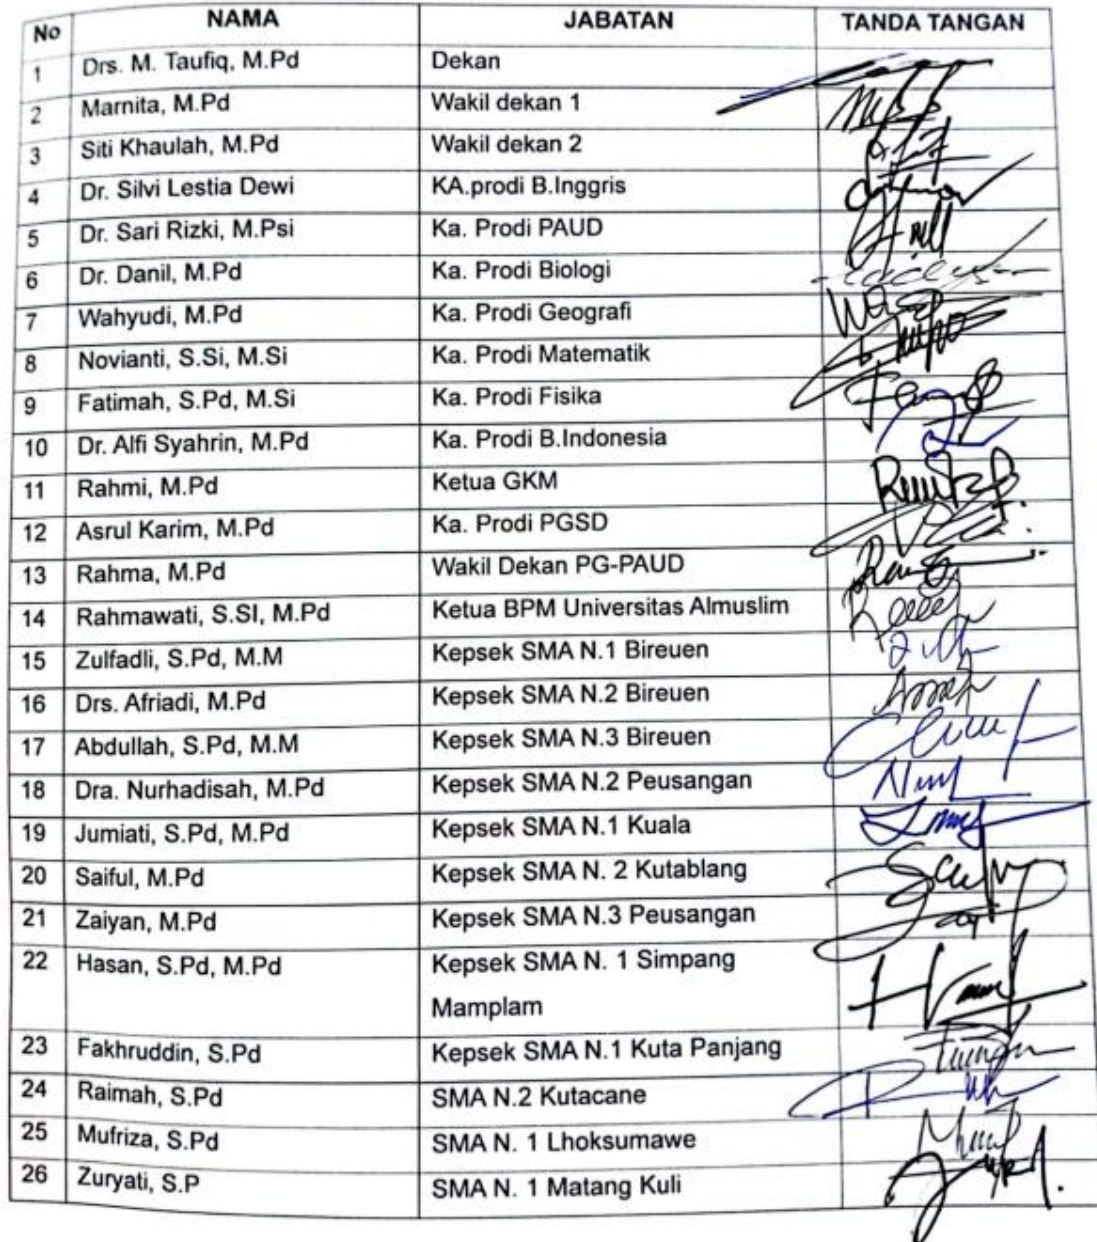 No NAMA JABATAN TANDA TANGAN
1 Drs. M. Taufiq, M.Pd Dekan
2 Marnita, M.Pd Wakil dekan 1
3 Siti Khaulah, M.Pd Wakil dekan 2
4 Dr. Silvi Lestia Dewi KA.prodi B.Inggris
5 Dr. Sari Rizki, M.Psi Ka. Prodi PAUD
6 Dr. Danil, M.Pd Ka. Prodi Biologi
7 Wahyudi, M.Pd Ka. Prodi Geografi
8 Novianti, S.Si, M.Si Ka. Prodi Matematik
9 Fatimah, S.Pd, M.Si Ka. Prodi Fisika
10 Dr. Alfi Syahrin, M.Pd Ka. Prodi B.Indonesia
11 Rahmi, M.Pd Ketua GKM
12 Asrul Karim, M.Pd Ka. Prodi PGSD
13 Rahma, M.Pd Wakil Dekan PG-PAUD
14 Rahmawati, S.SI, M.Pd Ketua BPM Universitas Almuslim
15 Zulfadli, S.Pd, M.M Kepsek SMA N.1 Bireuen
16 Drs. Afriadi, M.Pd Kepsek SMA N.2 Bireuen
17 Abdullah, S.Pd, M.M Kepsek SMA N.3 Bireuen
18 Dra. Nurhadisah, M.Pd Kepsek SMA N.2 Peusangan
19 Jumiati, S.Pd, M.Pd Kepsek SMA N.1 Kuala
20 Saiful, M.Pd Kepsek SMA N. 2 Kutablang
21 Zaiyan, M.Pd Kepsek SMA N.3 Peusangan
22 Hasan, S.Pd, M.Pd Kepsek SMA N. 1 Simpang
Mamplam
23 Fakhruddin, S.Pd Kepsek SMA N.1 Kuta Panjang
24 Raimah, S.Pd SMA N.2 Kutacane
25 Mufriza, S.Pd SMA N. 1 Lhoksumawe
26 Zuryati, S.P SMA N. 1 Matang Kuli